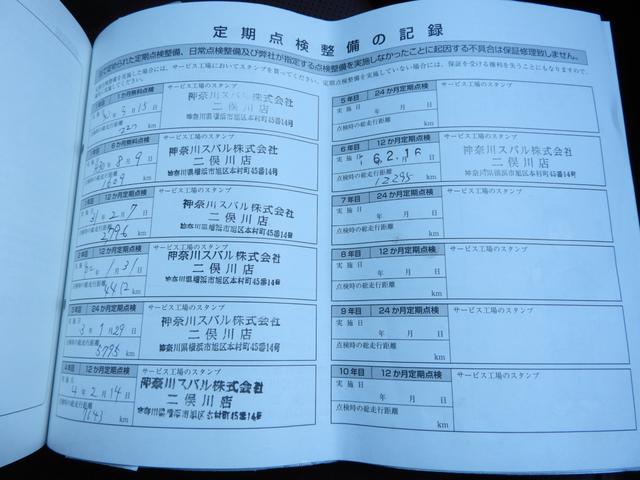 定期点検整備の記録
められた定期点検整備、日常点検整備及び弊社が指定する点検整備を実施しなかったことに起因する不具合は保証修理致しません。
を実施した場合には、サービス工場においてスタンプを貰ってください。定期点検整備を実施していない場合には、保証を受ける権利を失うこともなりますので、
1か月無料点検
サービス工場のスタンプ
3月15日
km
神奈川スバル株式会社
二俣川店
神奈川県横浜市旭区本村町45番14号
6か月無料点検
サービス工場のスタンプ
30年8月9日
km
神奈川スバル株式会社
二俣川店
神奈川県横浜市旭区本村町45番14号
12か月定期点検
サービス工場のスタンプ
31年2月7日
2796
km
神奈川スバル株式会社
二俣川店
神奈川県横浜市旭区本村町45番14号
12か月定期点検
サービス工場のスタンプ
1月31日
4412
km
神奈川スバル株式会社
二俣川店
神奈川県横浜市旭区本村町45番14号
24か月定期点検
サービス工場のスタンプ
3年1月29日
5795
km
神奈川スバル株式会社
二俣川店
神奈川県横浜市旭区本村町45番14号
4年目 12か月定期点検
サービス工場のスタンプ
4年2月14日
km
神奈川スバル株式会社
二俣川店
神奈川県横浜市旭区本村町45番14号
5年目 24か月定期点検
サービス工場のスタンプ
実施日
年 月 日
点検時の総走行距離
km
6年目 12か月定期点検
サービス工場のスタンプ
実施日
6.2.16
点検時の総走行距離
12295
km
神奈川スバル株式会社
二俣川店
神奈川県横浜市旭区本村町45番14号
7年目 24か月定期点検
サービス工場のスタンプ
実施日
年 月 日
点検時の総走行距離
km
8年目 12か月定期点検
サービス工場のスタンプ
実施日
年 月 日
点検時の総走行距離
km
9年目 24か月定期点検
サービス工場のスタンプ
実施日
年 月 日
点検時の総走行距離
km
10年目 12か月定期点検
サービス工場のスタンプ
実施日
年 月 日
点検時の総走行距離
km